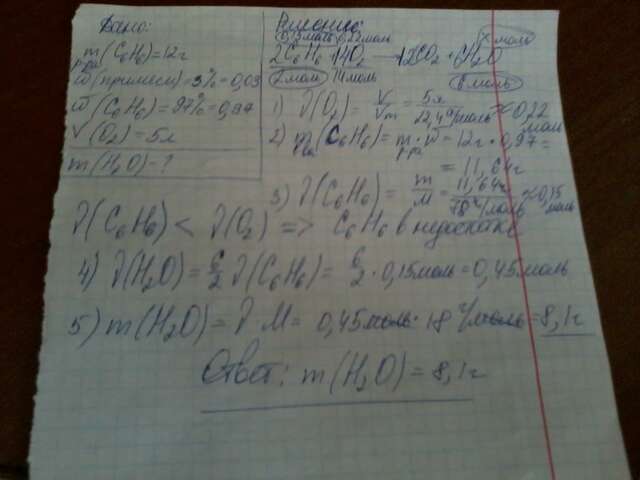 Дано:
m р-ра (C₆H₆) = 12г
ω (примеси) = 3% = 0,03
ω (C₆H₆) = 97% = 0,97
V (O₂) = 5л
m (H₂O) = ?
Решение:
0,15моль 0,22моль x моль
2C₆H₆ + 14O₂ → 12CO₂ + 6H₂O
2моль 14моль 6 моль
1) ν(O₂) = V/Vm = 5л/22,4 л/моль ≈ 0,22 моль
2) m в-ва (C₆H₆) = m р-ра · ω = 12г · 0,97 =
= 11,64г
3) ν(C₆H₆) = m/M = 11,64г/78 г/моль ≈ 0,15 моль
ν(C₆H₆) < ν(O₂) => C₆H₆ в недостатке
4) ν(H₂O) = 6/2 ν(C₆H₆) = 6/2 · 0,15моль = 0,45моль
5) m(H₂O) = ν M = 0,45моль · 18 г/моль = 8,1г
Ответ: m(H₂O) = 8,1г